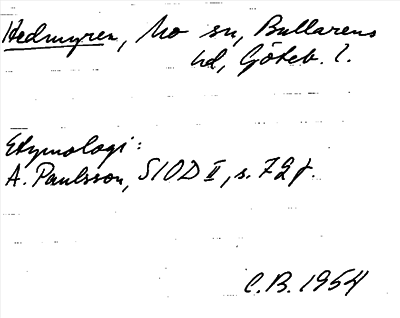 Hedmyren, Mo sn, Bullarens
hd, Göteb. l.
Etymologi:
A. Paulsson, SIOD II, s. 72 f.
C.B. 1954